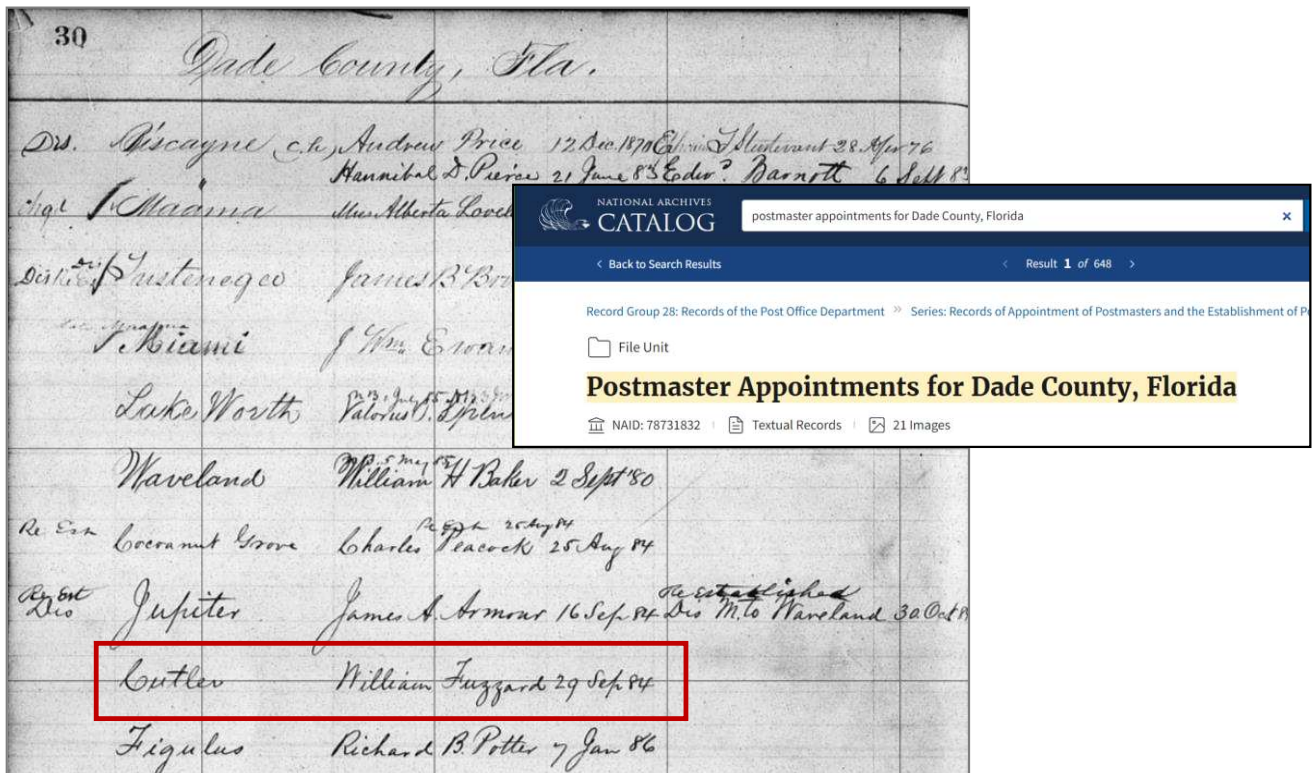 30
Dade County, Fla.
Dis. Biscayne c.h, Andrew Price 12 Dec. 1870 Ephraim T. Sturtevant 28 Apr 76
Hannibal D. Pierce 21 June 83 Edw? Barnott 6 Sept 83
Maama Mrs Alberta Lovel
Fustenegco James B
Miami J Wm. Ewan
Lake Worth Valorus
Waveland William H Baker 2 Sept '80
Re Est 25 Aug 84
Re Est Cocoanut Grove Charles Peacock 25 Aug 84
Re Established
Re Est
Dis Jupiter James A. Armour 16 Sep 84 Dis M. to Waveland 30 Oct
Cutler William Fuzzard 29 Sep 84
Figulus Richard B. Potter 7 Jan 86
NATIONAL ARCHIVES
CATALOG
postmaster appointments for Dade County, Florida ×
< Back to Search Results < Result 1 of 648 >
Record Group 28: Records of the Post Office Department » Series: Records of Appointment of Postmasters and the Establishment of
File Unit
Postmaster Appointments for Dade County, Florida
NAID: 78731832 Textual Records 21 Images